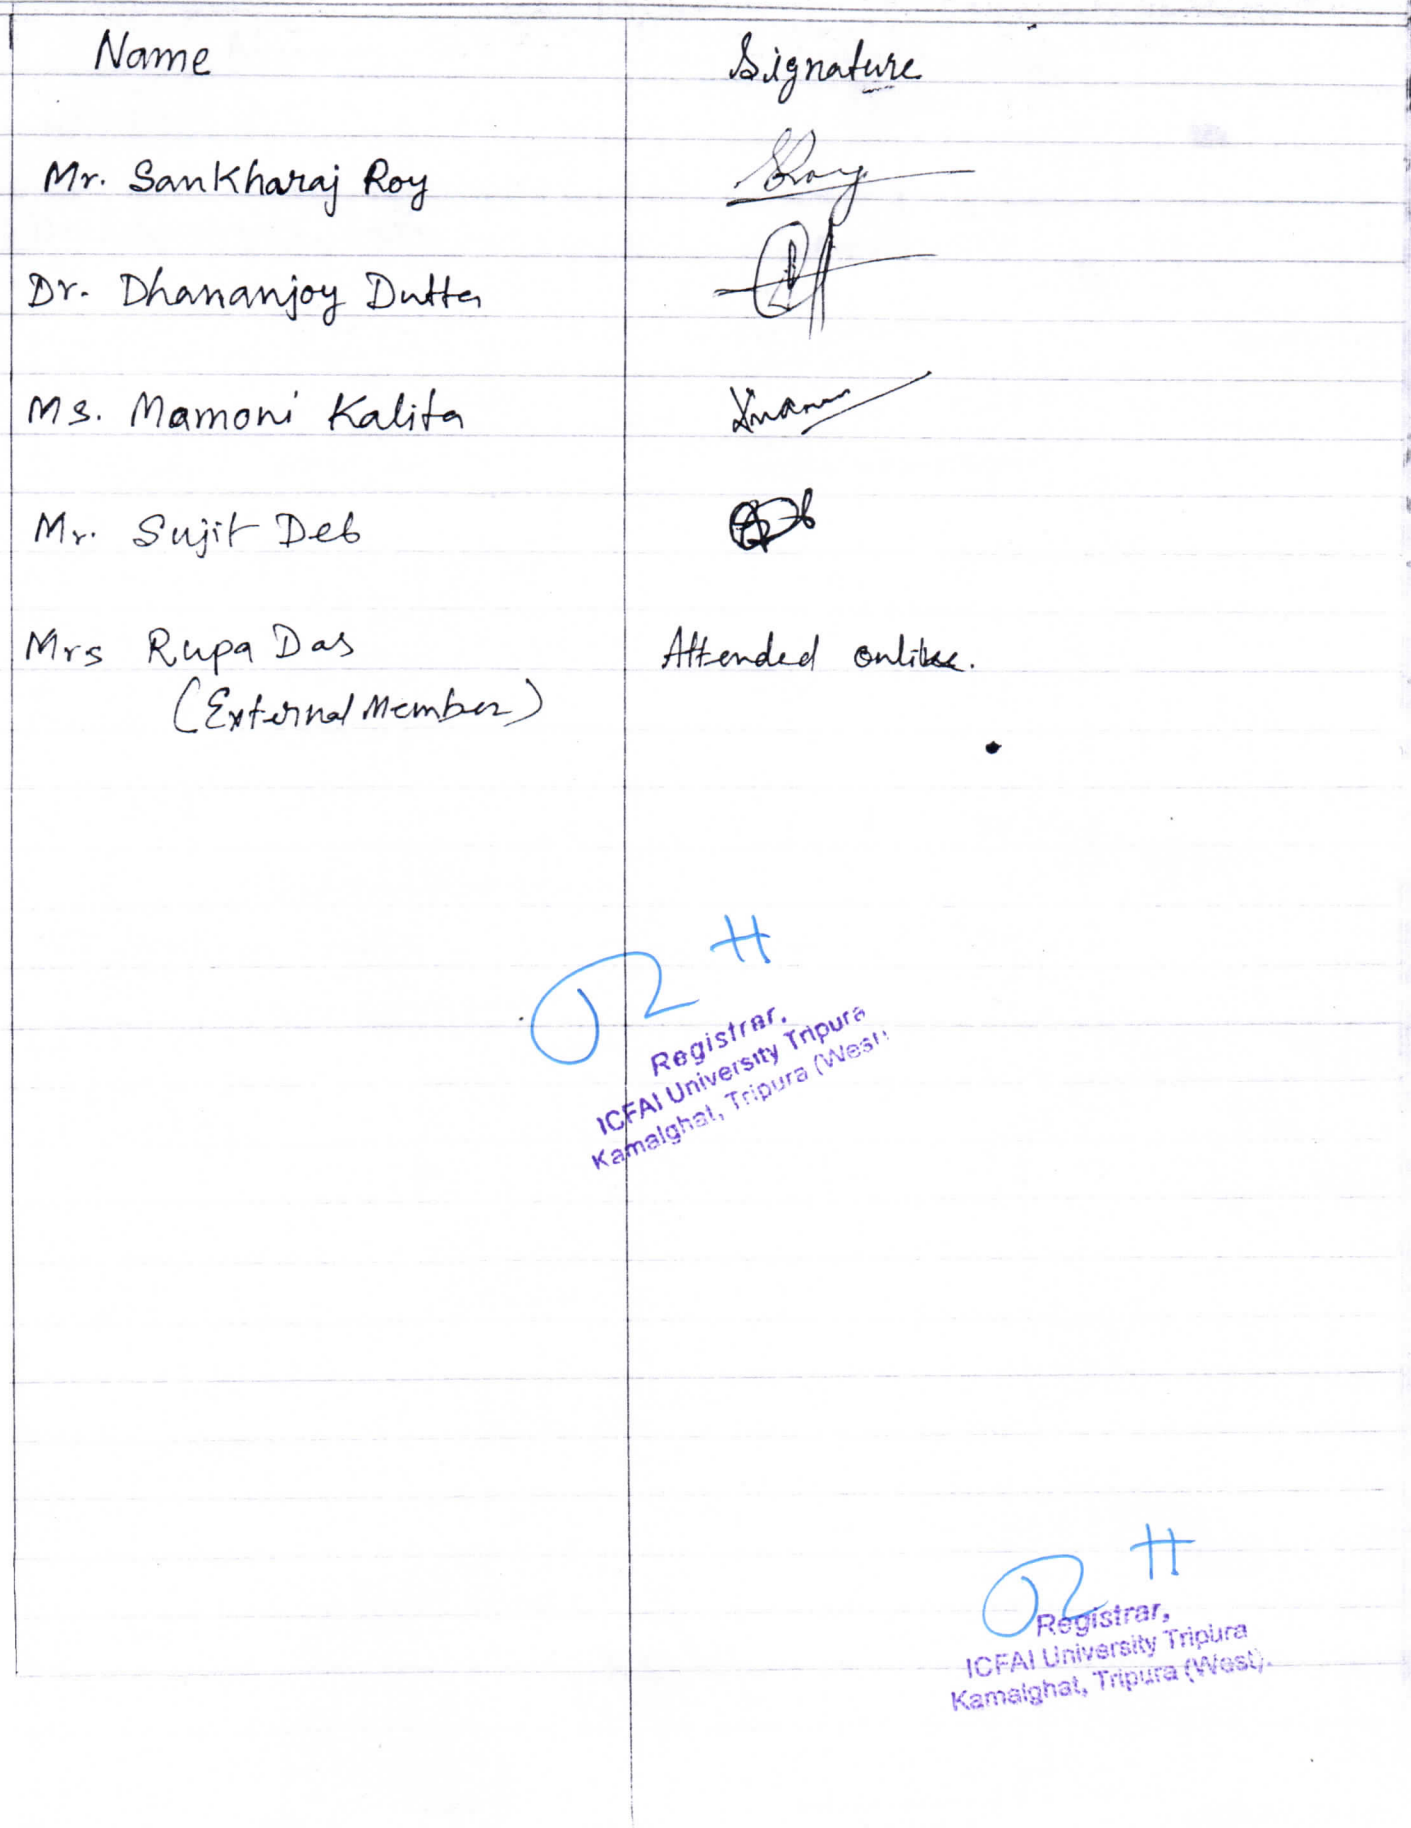 Name Signature
Mr. Sankharaj Roy SRoy
Dr. Dhananjoy Dutta
Ms. Mamoni Kalita
Mr. Sujit Deb
Mrs Rupa Das Attended online.
(External Member)
Registrar,
ICFAI University Tripura
Kamalghat, Tripura (West).
Registrar,
ICFAI University Tripura
Kamalghat, Tripura (West).